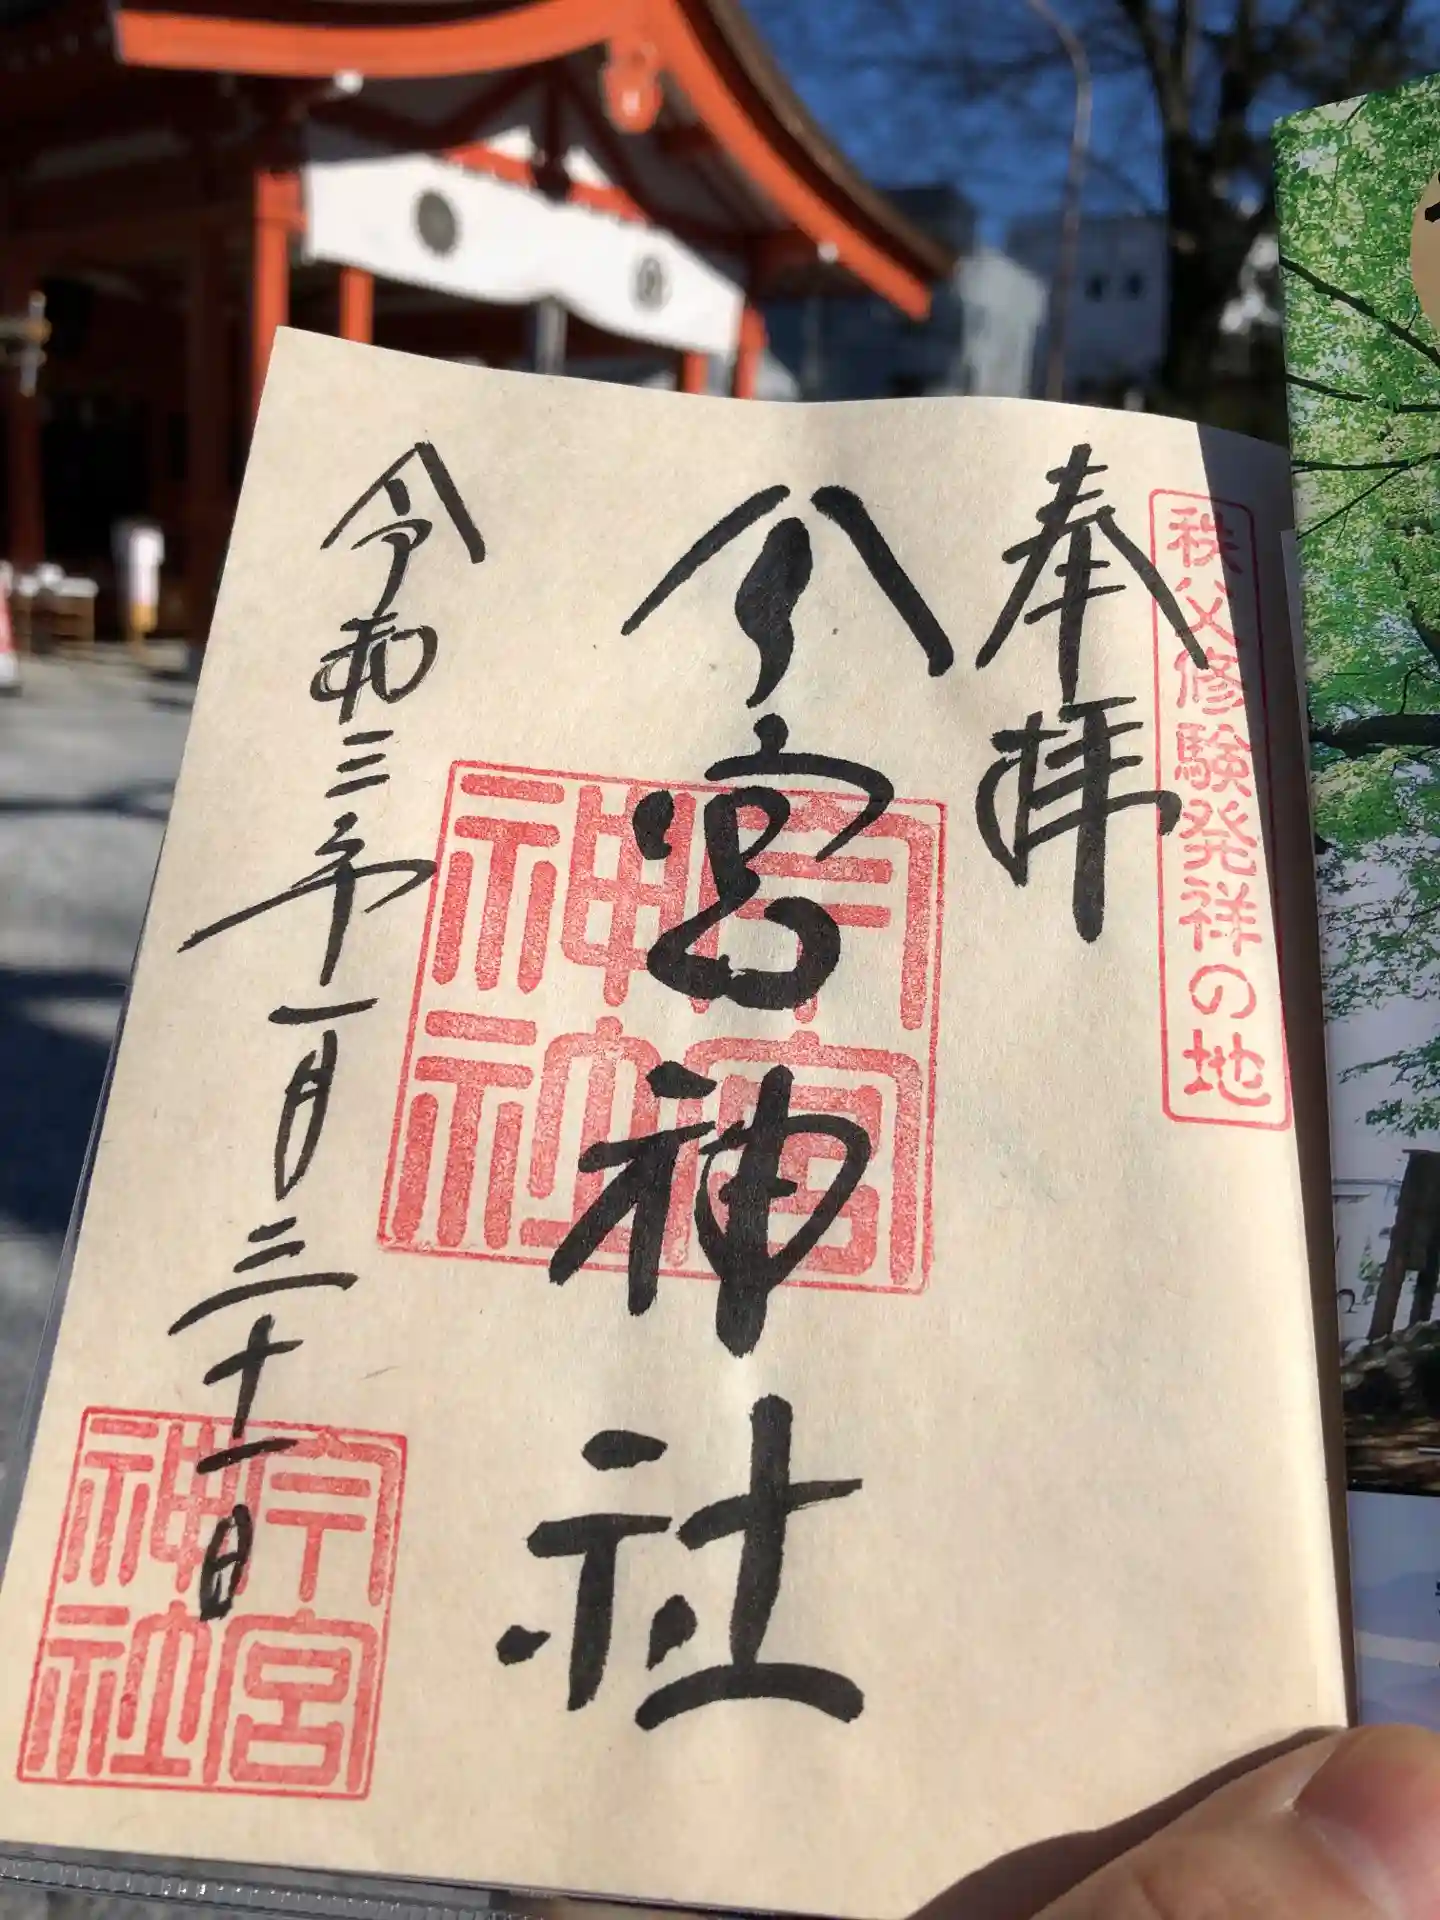 秩父修験発祥の地
奉拝
今宮神社
今宮神社
令和三年一月三十一日
今宮神社